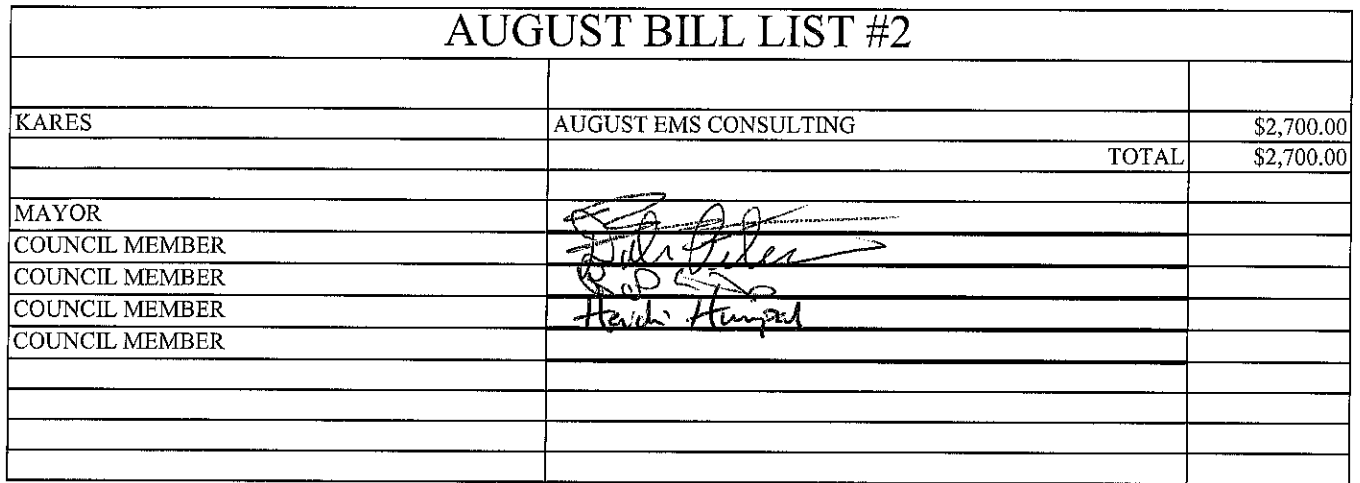 AUGUST BILL LIST #2
KARES AUGUST EMS CONSULTING $2,700.00
TOTAL $2,700.00
MAYOR
COUNCIL MEMBER
COUNCIL MEMBER
COUNCIL MEMBER Heidi
COUNCIL MEMBER